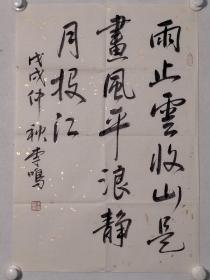 雨止雲收山是
畫風平浪靜
月投江
戊戌仲秋李鳴